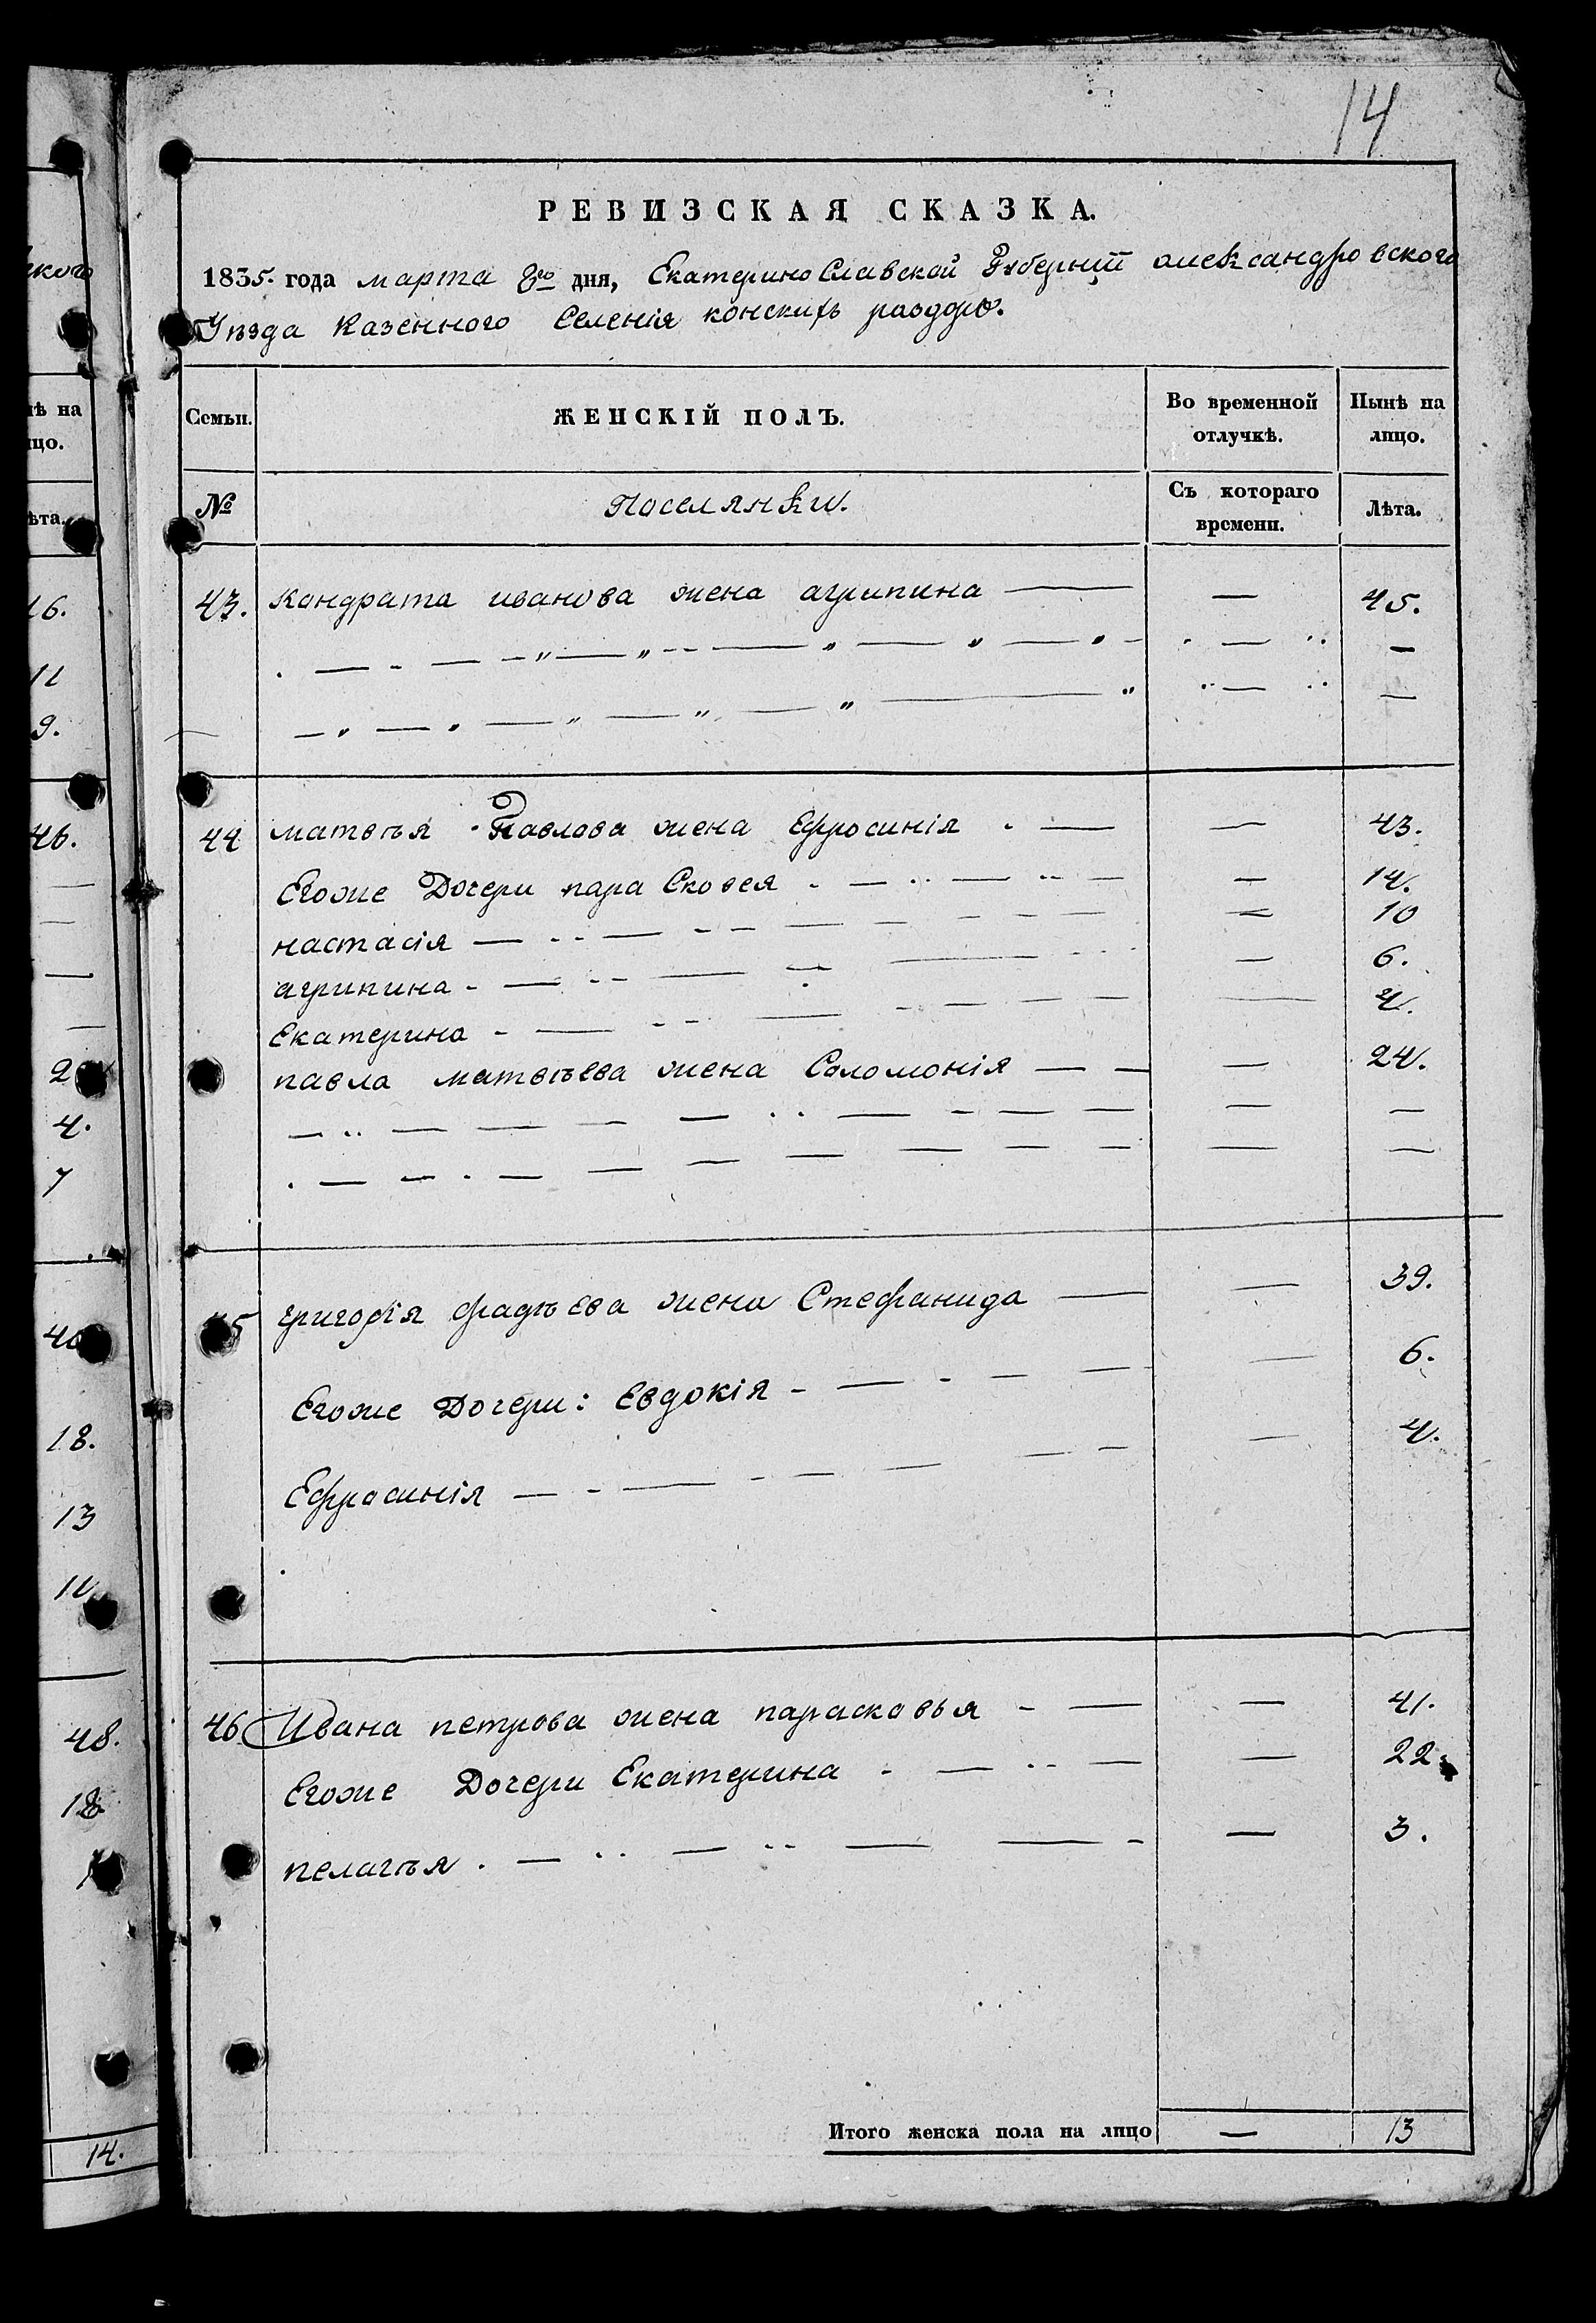 14
РЕВИЗСКАЯ СКАЗКА.
1835. года марта 8го дня, Екатерино Славской Губернїи александровского
Уѣзда Казенного Селенія конскихъ раздоръ.
Семьи. ЖЕНСКІЙ ПОЛЪ. Во временной отлучкѣ. Нынѣ на лицо.
№ Поселянки. Съ котораго времени. Лѣта.
43. Кондрата иванова жена агрипина — — 45.
44 матвѣя Павлова жена Ефросинія — — 43.
Егоже Дочери пара Сковея — — 14.
настасія — — 10
агрипина — — 6.
Екатерина — — 4.
павла матвѣева жена Соломонія — — 24.
5 григорія фадѣева жена Стефанида — — 39.
Егоже Дочери: Евдокія — — 6.
Ефросинія — — 4.
46 Ивана петрова жена парасковья — — 41.
Егоже Дочери Екатерина — — 22.
пелагѣя — — 3.
Итого женска пола на лицо — 13
кого
ѣ на
цо.
ѣта.
16.
11
9.
46.
2
4.
7
40
18.
13
11
48.
18
14.